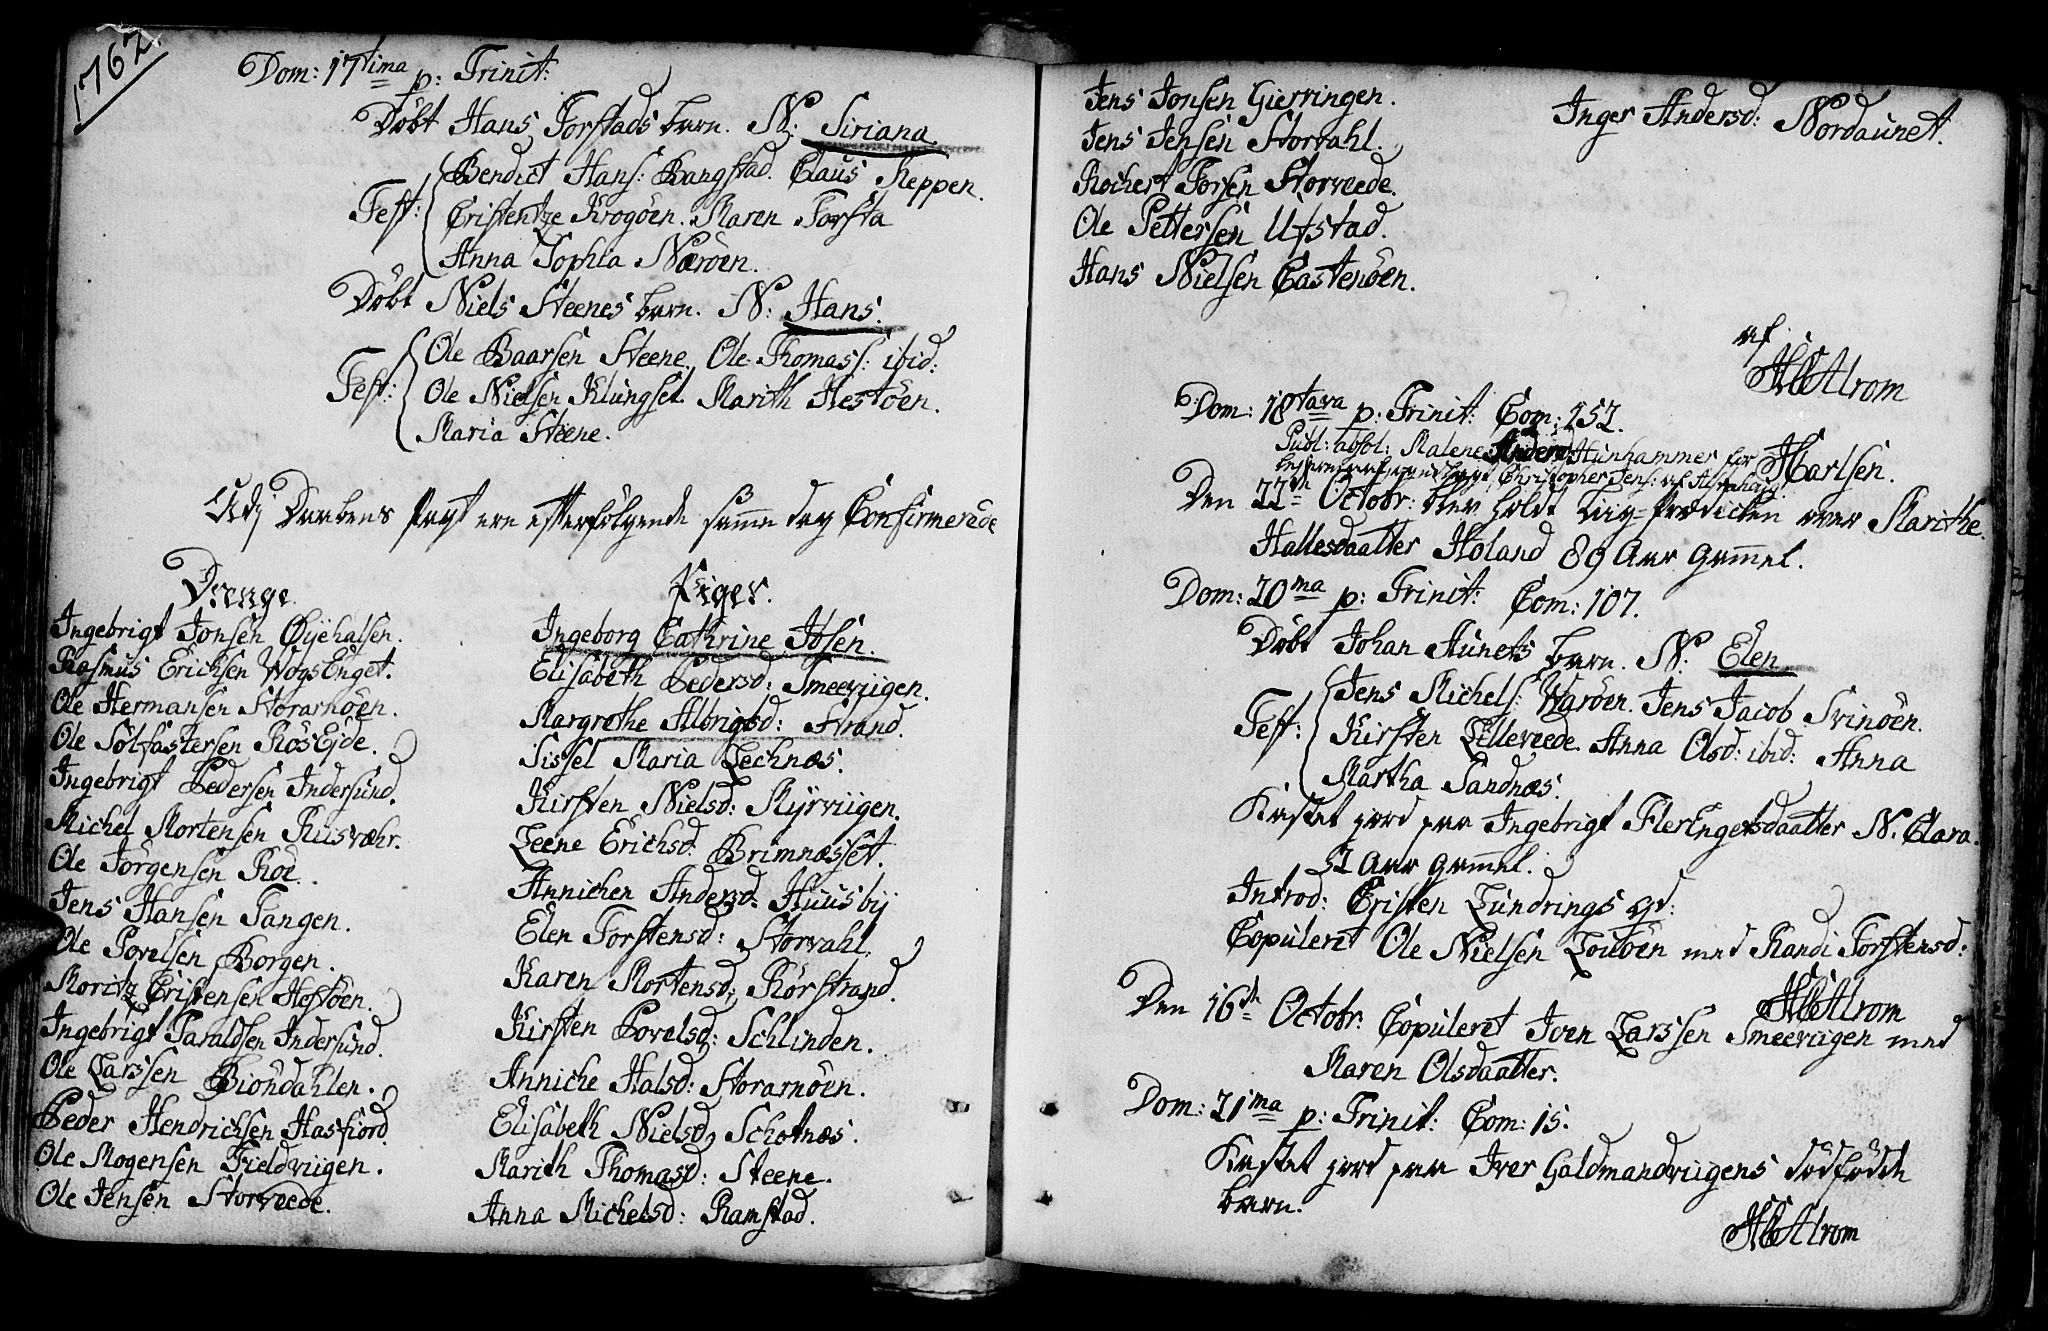 1762.
Dom: 17tima p: Trinit:
Döbt Hans Forstads barn. N: Siriana
Test: Bendict Hans: Bangstad. Claus Reppen.
Cristentze Krogöen. Maren Forsta
Anna Sophia Næröen.
Döbt Niels Steenes barn. N: Hans.
Test: Ole Baarsen Steene. Ole Thomass: ibid:
Ole Nielsen Klungset. Marith Hestöen.
Maria Steene.
Udj Daabens Pagt ere efterfölgende samme dag Confirmerede
Drenge.
Ingebrigt Jonsen Öÿehalsen.
Rasmus Erichsen WogsEnget.
Ole Hermansen Storarnöen.
Ole Solfastersen RösEjde.
Ingebrigt Pedersen Indersund.
Michel Mortensen Riisvæhr.
Ole Jörgensen Roe.
Jens Hansen Tangen.
Ole Povelsen Borgen.
Moritz Cristensen Hestöen.
Ingebrigt Haraldsen Indersund.
Ole Larssen Biöndahlen.
Peder Hendrichsen Hasfiord.
Ole Mogensen Fieldviigen.
Ole Jensen Storveede.
Piger.
Ingeborg Cathrine Ibsen.
Elisabeth Pedersd: Smeeviigen.
Margrethe Albrigtsd: Strand.
Sissel Maria Lechnæs.
Kirsten Nielsd: Myrviigen.
Leene Erichsd. Brimnæsset.
Annichen Andersd: Huusbÿ
Elen Torstensd: Storvahl.
Karen Mortensd: Rörstrand.
Kirsten Povelsd: Schlinden.
Anniche Halsd: Storarnöen.
Elisabeth Nielsd. Schotnæs.
Marith Thomasd: Steene.
Anna Michelsd: Ramstad.
Jens Jonsen Gierringen.
Jens Jensen Storvahl.
Rochert Torsen Storveede.
Ole Pettersen Ufstad.
Hans Nielsen Castenöen.
Inger Andersd: Nordaunet.
af
HCAlrom
Dom: 18tava p: Trinit: Com: 152.
Publ: absol: Malene Anders: Hunhammer for
Christopher Jens: af
HCarlsen.
Den 22de Octobr: blev holdt Liig-Prædicken over Marithe
Hallesdaatter Höland 89 Aar gammel.
Dom: 20ma p: Trinit: Com: 107.
Döbt Johan Aunets barn. N: Elen
Test: Jens Michels: Waröen. Jens Jacob Svinöen.
Kirsten Lilleveede. Anna Olsd: ibid: Anna
Martha Sandnæs.
Kastet jord paa Ingebrigt FlerEngetsdaatter N. Clara.
52 Aar gammel.
Introd: Cristen Lundrings qd:
Copuleret Ole Nielsen Louöen med Randi Torstensd:
HCAlrom
Den 16de Octobr: Copuleret Iven Larssen Smeeviigen med
Maren Olsdaatter.
Dom: 21ma p: Trinit: Com: 15.
Kastet jord paa Iver Galdmandviigens dödfödde
barn.
HCAlrom